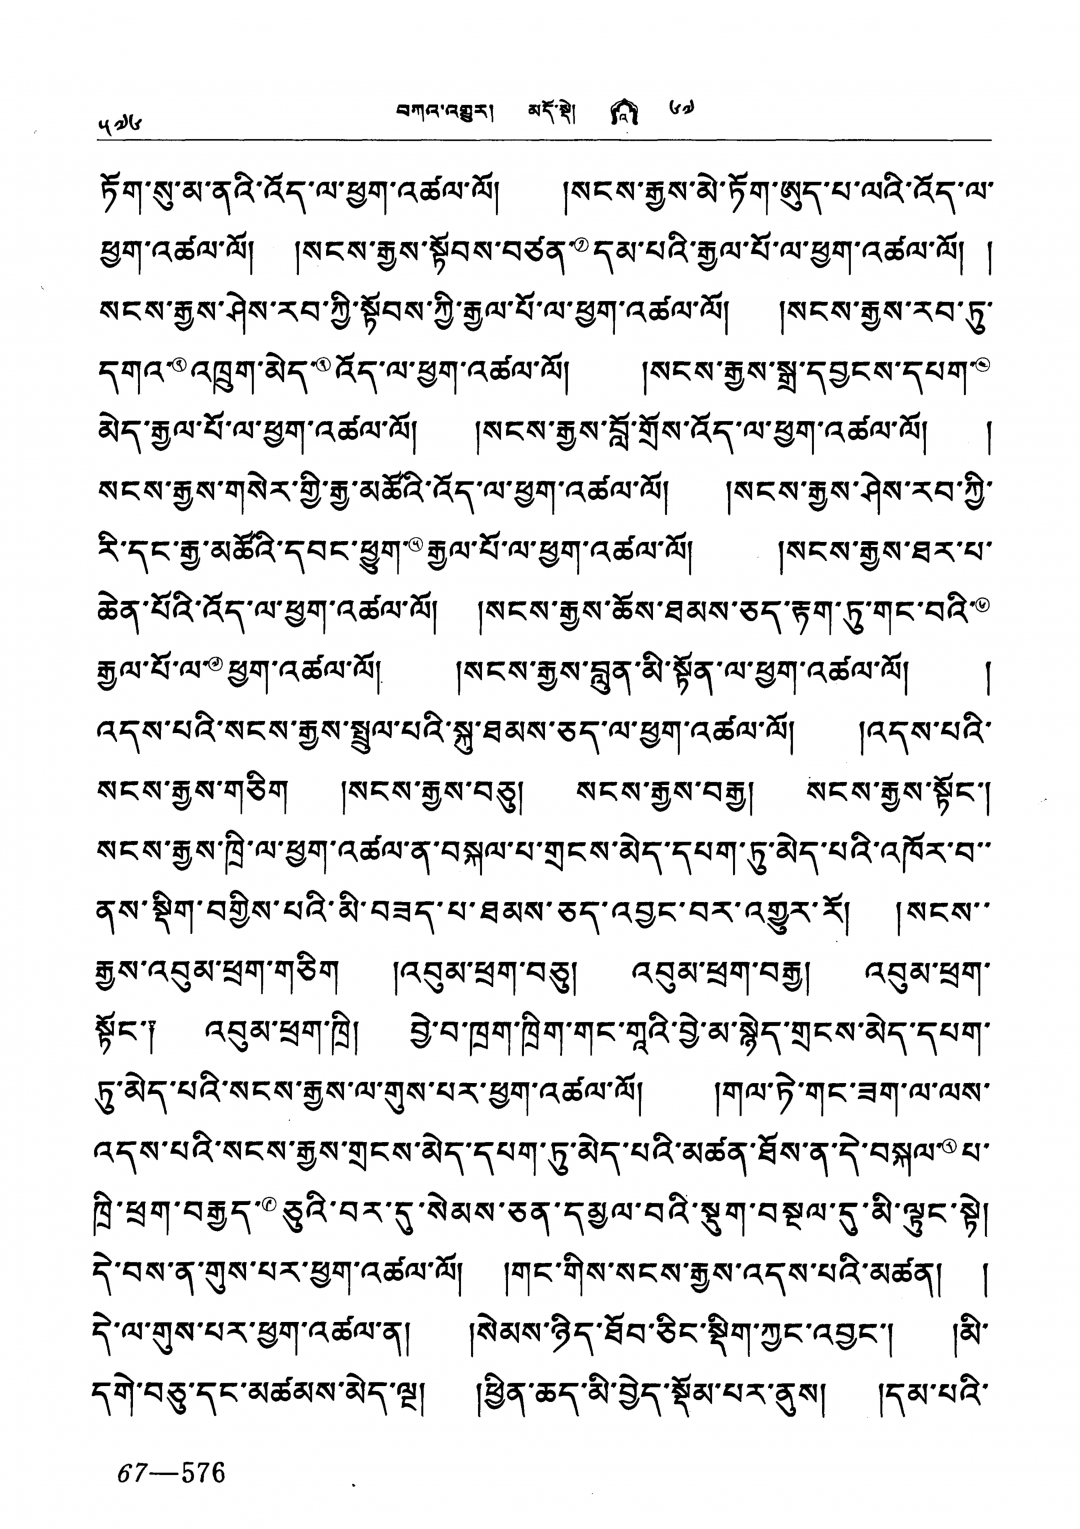 ༥༧༦ བཀའ་འགྱུར། མདོ་སྡེ། འ ༦༧
ཏོག་སུ་མ་ནའི་འོད་ལ་ཕྱག་འཚལ་ལོ། །སངས་རྒྱས་མེ་ཏོག་ཨུད་པ་ལའི་འོད་ལ་
ཕྱག་འཚལ་ལོ། །སངས་རྒྱས་སྟོབས་བཙན་①དམ་པའི་རྒྱལ་པོ་ལ་ཕྱག་འཚལ་ལོ། །
སངས་རྒྱས་ཤེས་རབ་ཀྱི་སྟོབས་ཀྱི་རྒྱལ་པོ་ལ་ཕྱག་འཚལ་ལོ། །སངས་རྒྱས་རབ་ཏུ་
དགའ་②འཁྲུག་མེད་③འོད་ལ་ཕྱག་འཚལ་ལོ། །སངས་རྒྱས་སྒྲ་དབྱངས་དཔག་④
མེད་རྒྱལ་པོ་ལ་ཕྱག་འཚལ་ལོ། །སངས་རྒྱས་བློ་གྲོས་འོད་ལ་ཕྱག་འཚལ་ལོ། །
སངས་རྒྱས་གསེར་གྱི་རྒྱ་མཚོའི་འོད་ལ་ཕྱག་འཚལ་ལོ། །སངས་རྒྱས་ཤེས་རབ་ཀྱི་
རི་དང་རྒྱ་མཚོའི་དབང་ཕྱུག་⑤རྒྱལ་པོ་ལ་ཕྱག་འཚལ་ལོ། །སངས་རྒྱས་ཐར་པ་
ཆེན་པོའི་འོད་ལ་ཕྱག་འཚལ་ལོ། །སངས་རྒྱས་ཆོས་ཐམས་ཅད་རྟག་ཏུ་གང་བའི་⑥
རྒྱལ་པོ་ལ་⑦ཕྱག་འཚལ་ལོ། །སངས་རྒྱས་བླུན་མི་སྟོན་ལ་ཕྱག་འཚལ་ལོ། །
འདས་པའི་སངས་རྒྱས་སྤྲུལ་པའི་སྐུ་ཐམས་ཅད་ལ་ཕྱག་འཚལ་ལོ། །འདས་པའི་
སངས་རྒྱས་གཅིག །སངས་རྒྱས་བཅུ། སངས་རྒྱས་བརྒྱ། སངས་རྒྱས་སྟོང་།
སངས་རྒྱས་ཁྲི་ལ་ཕྱག་འཚལ་ན་བསྐལ་པ་གྲངས་མེད་དཔག་ཏུ་མེད་པའི་འཁོར་བ་་
ནས་སྡིག་བགྱིས་པའི་མི་བཟད་པ་ཐམས་ཅད་འབྱང་བར་འགྱུར་རོ། །སངས་་
རྒྱས་འབུམ་ཕྲག་གཅིག །འབུམ་ཕྲག་བཅུ། འབུམ་ཕྲག་བརྒྱ། འབུམ་ཕྲག་
སྟོང་། འབུམ་ཕྲག་ཁྲི། བྱེ་བ་ཁྲག་ཁྲིག་གང་གཱའི་བྱེ་མ་སྙེད་གྲངས་མེད་དཔག་
ཏུ་མེད་པའི་སངས་རྒྱས་ལ་གུས་པར་ཕྱག་འཚལ་ལོ། །གལ་ཏེ་གང་ཟག་ལ་ལས་
འདས་པའི་སངས་རྒྱས་གྲངས་མེད་དཔག་ཏུ་མེད་པའི་མཚན་ཐོས་ན་དེ་བསྐལ་⑧པ་
ཁྲི་ཕྲག་བརྒྱད་⑨ཅུའི་བར་དུ་སེམས་ཅན་དམྱལ་བའི་སྡུག་བསྔལ་དུ་མི་ལྟུང་སྟེ།
དེ་བས་ན་གུས་པར་ཕྱག་འཚལ་ལོ། །གང་གིས་སངས་རྒྱས་འདས་པའི་མཚན། །
དེ་ལ་གུས་པར་ཕྱག་འཚལ་ན། །སེམས་ཉིད་ཐོབ་ཅིང་སྡིག་ཀྱང་འབྱང་། །མི་
དགེ་བཅུ་དང་མཚམས་མེད་ལྔ། །ཕྱིན་ཆད་མི་བྱེད་སྡོམ་པར་ནུས། །དམ་པའི་
67—576